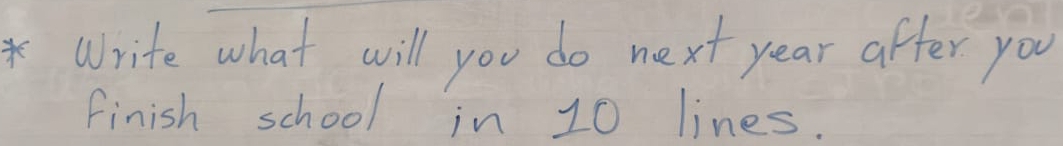 * Write what will you do next year after you
finish school in 10 lines.